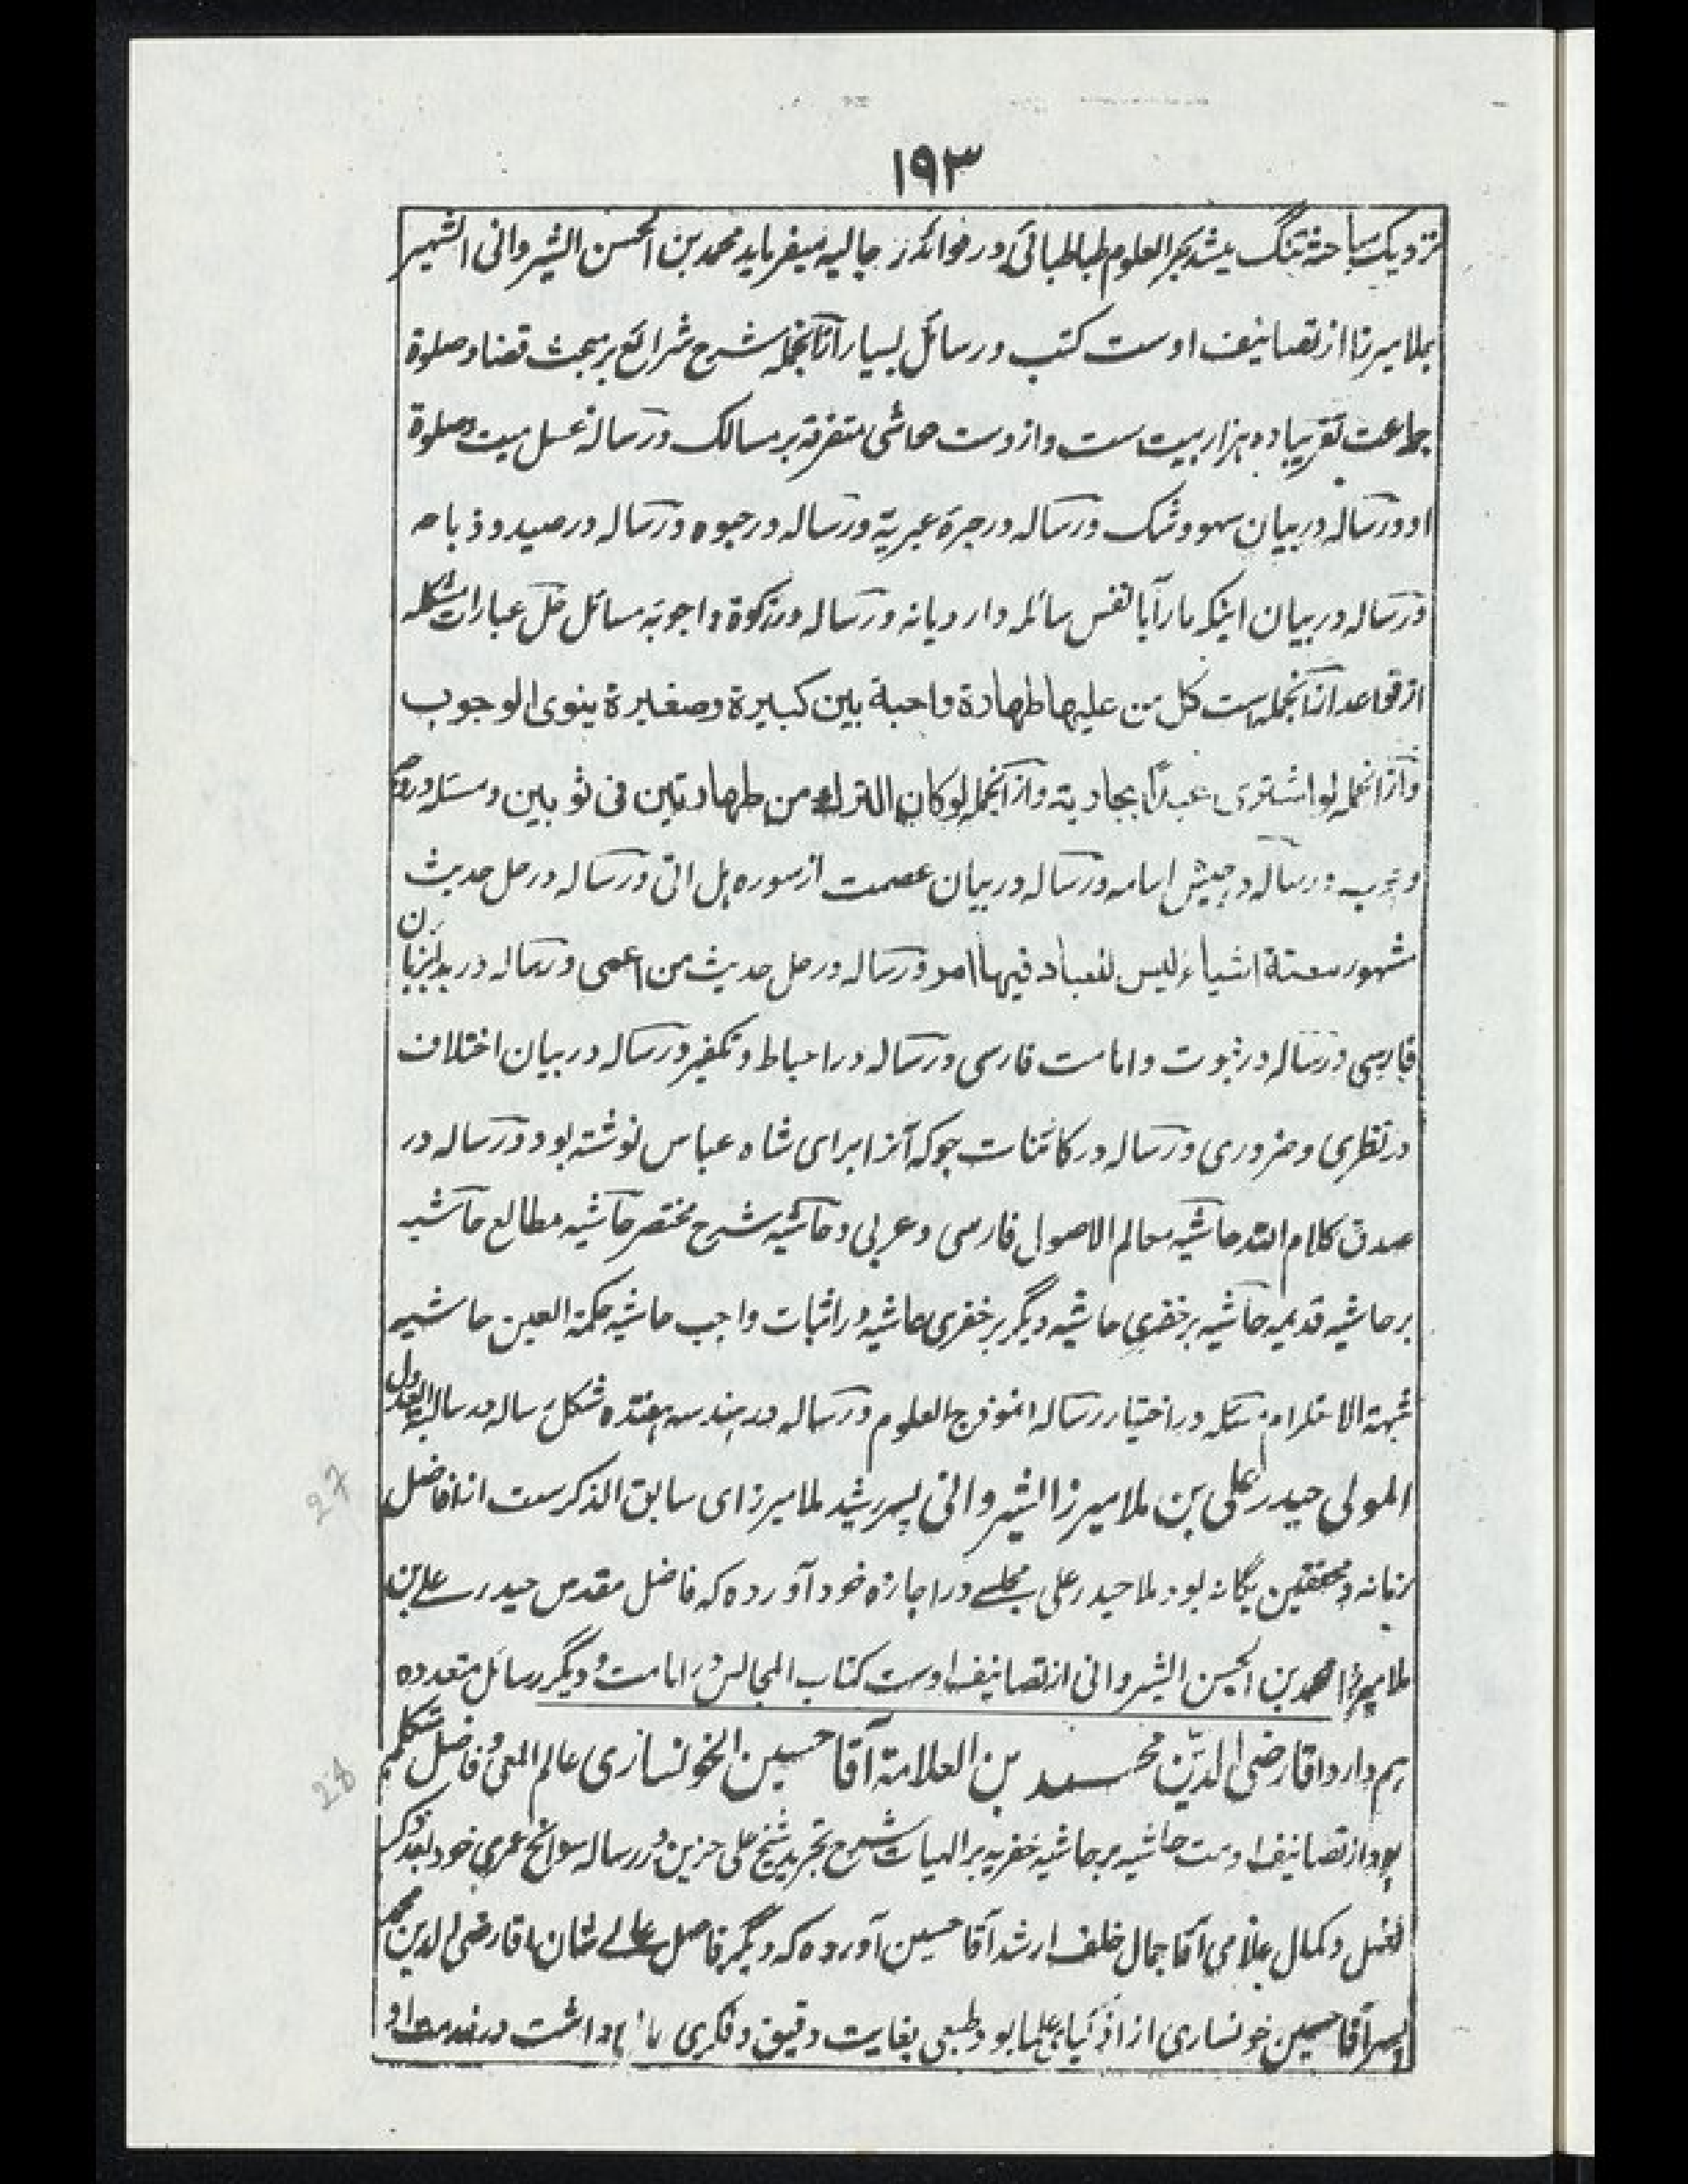 ١٩٣
نزدیک ساحته تنگ میشد بحر العلوم طباطبائی در فوائد رجالیه میفرماید محمد بن الحسن الشیروانی الشهیر
بملا میرزا از تصانیف اوست کتب و رسائل بسیار ازانجمله شرح شرائع بر مبحث قضا و صلوة
جماعت تقریبا دو هزار بیت ست و ازوست حواشی متفرقه بر مسالک و رساله غسل میت و صلوة
او و رساله در بیان سهو و شک و رساله در جبره عبریة و رساله در حبوه و رساله در صید و ذباحه
و رساله در بیان اینکه مار آیا نفس سائله دارد یا نه و رساله در زکوة و اجوبه مسائل حل عبارات مشکله
از قواعد ازانجمله است کل من علیها طهارة واجبة بین کبیرة و صغیرة ینوی الوجوب
و ازانجمله لو اشتری عبدًا بجاریة و ازانجمله لو کان الترک من طهارتین فی ثوبین و مسئله
وجوب و رساله در جیش اسامه و رساله در بیان عصمت از سوره هل اتی و رساله در حل حدیث
مشهور ستة اشیاء لیس للعباد فیها امر و رساله در حل حدیث من اعمی و رساله در بدا بزبان
فارسی و رساله در نبوت و امامت فارسی و رساله در احباط و تکفیر و رساله در بیان اختلاف
در نظری و ضروری و رساله در کائنات جو که آنرا برای شاه عباس نوشته بود و رساله در
صدق کلام الله حاشیه معالم الاصول فارسی و عربی و حاشیه شرح مختصر حاشیه مطالع حاشیه
بر حاشیه قدیمه حاشیه بر خفری حاشیه دیگر بر خفری حاشیه در اثبات واجب حاشیه حکمة العین حاشیه
شبهة الاستلزام مسئله در اختیار رساله انموذج العلوم و رساله در هندسه هفتده شکل رساله در سالبة المعدول
المولی حیدر علی بن ملا میرزا الشیروانی پسر رشید ملا میرزای سابق الذکرست از افاضل
زمانه و محققین یگانه بود ملا حیدر علی مجلسے در اجازه خود آورده که فاضل مقدس حیدر علے بن
ملا میرزا محمد بن الحسن الشیروانی از تصانیف اوست کتاب المجالس در امامت و دیگر رسائل متعدده
هم دارد اقا رضی الدین محمد بن العلامة آقا حسین الخونساری عالم المعی و فاضل متکلم
بود از تصانیف اوست حاشیه بر حاشیه خفریه بر الهیات شرح تجرید شیخ علی حزین در رساله سوانح عمری خود بعد ذکر
فضل و کمال علامی آقا جمال خلف ارشد آقا حسین آورده که دیگر فاضل عالے شان اقا رضی الدین محمد
پسر آقا حسین خونساری از اذکیاء علما بود طبعی بغایت دقیق و فکری داشت در خدمت او
27
28